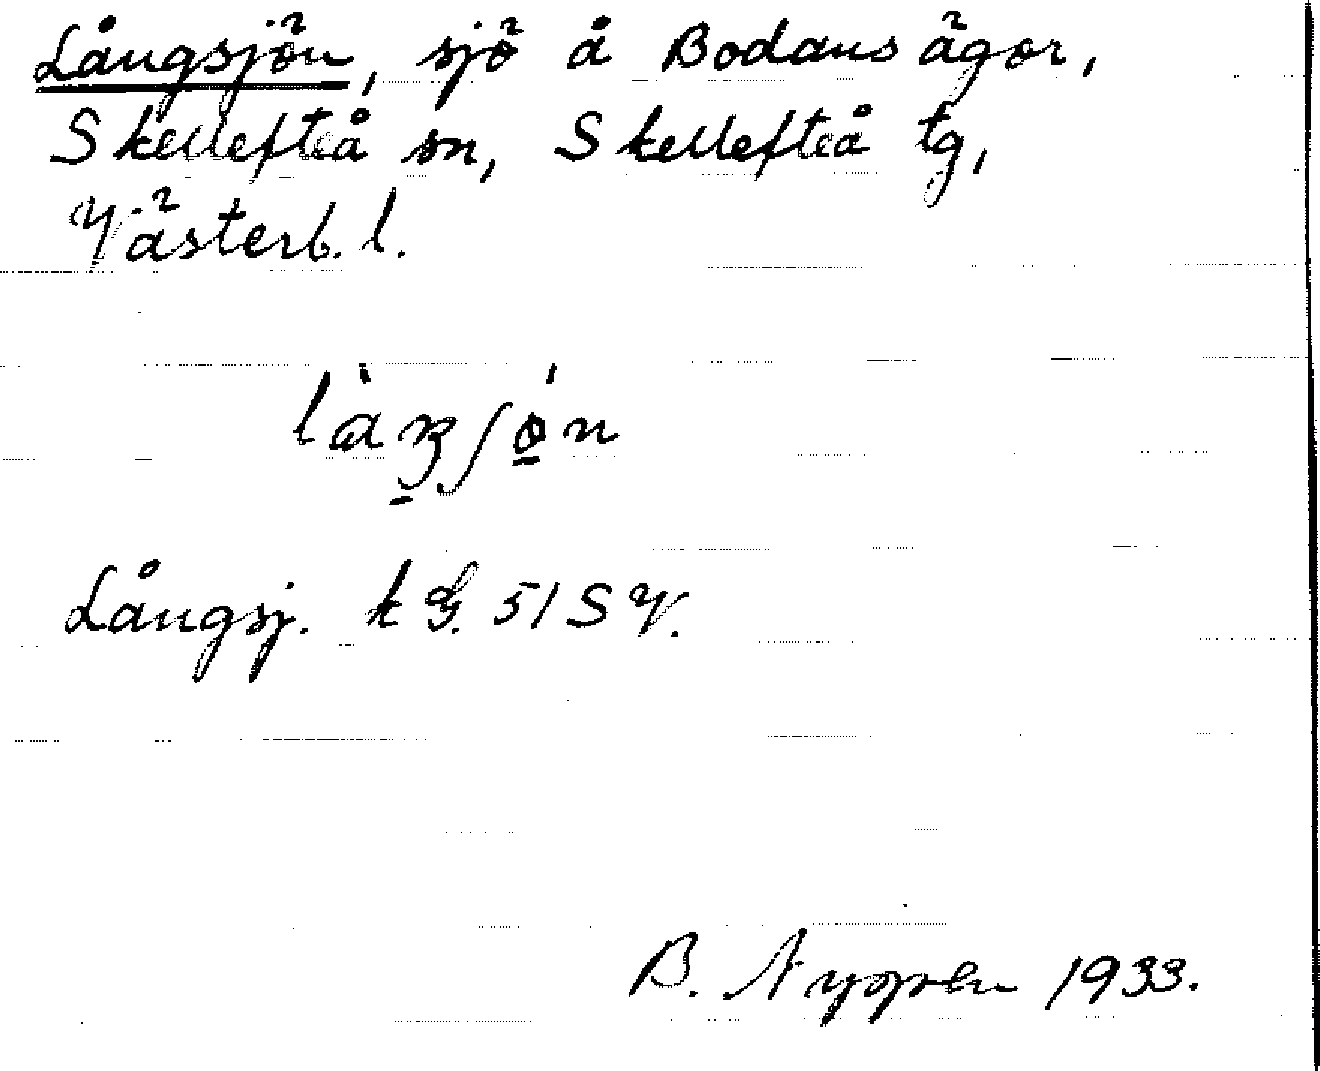 Långsjön, sjö å Bodans ägor,
Skellefteå sn, Skellefteå tg,
Västerb. l.
Långsj. k G. 51 S V.
B. Nyopen 1933.